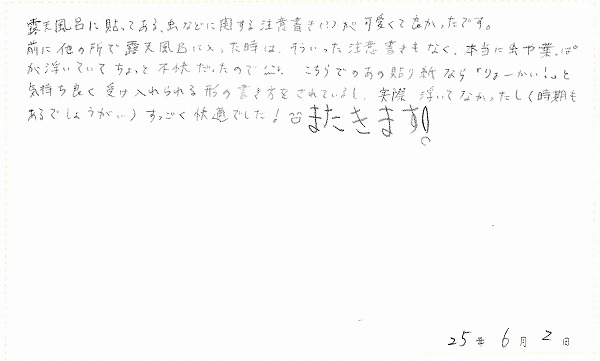 露天風呂に貼ってある、虫などに関する注意書き(?)が可愛くて良かったです。
前に他の所で露天風呂に入った時は、そういった注意書きもなく、本当に虫や葉っぱ
が浮いていてちょっと不快だったので、こちらでのあの貼り紙なら「りょーかい!」と
気持ち良く受け入れられる形の書き方をされているし、実際 浮いてなかったし(時期も
あるでしょうがい)すっごく快適でした!またきます!
25年6月2日